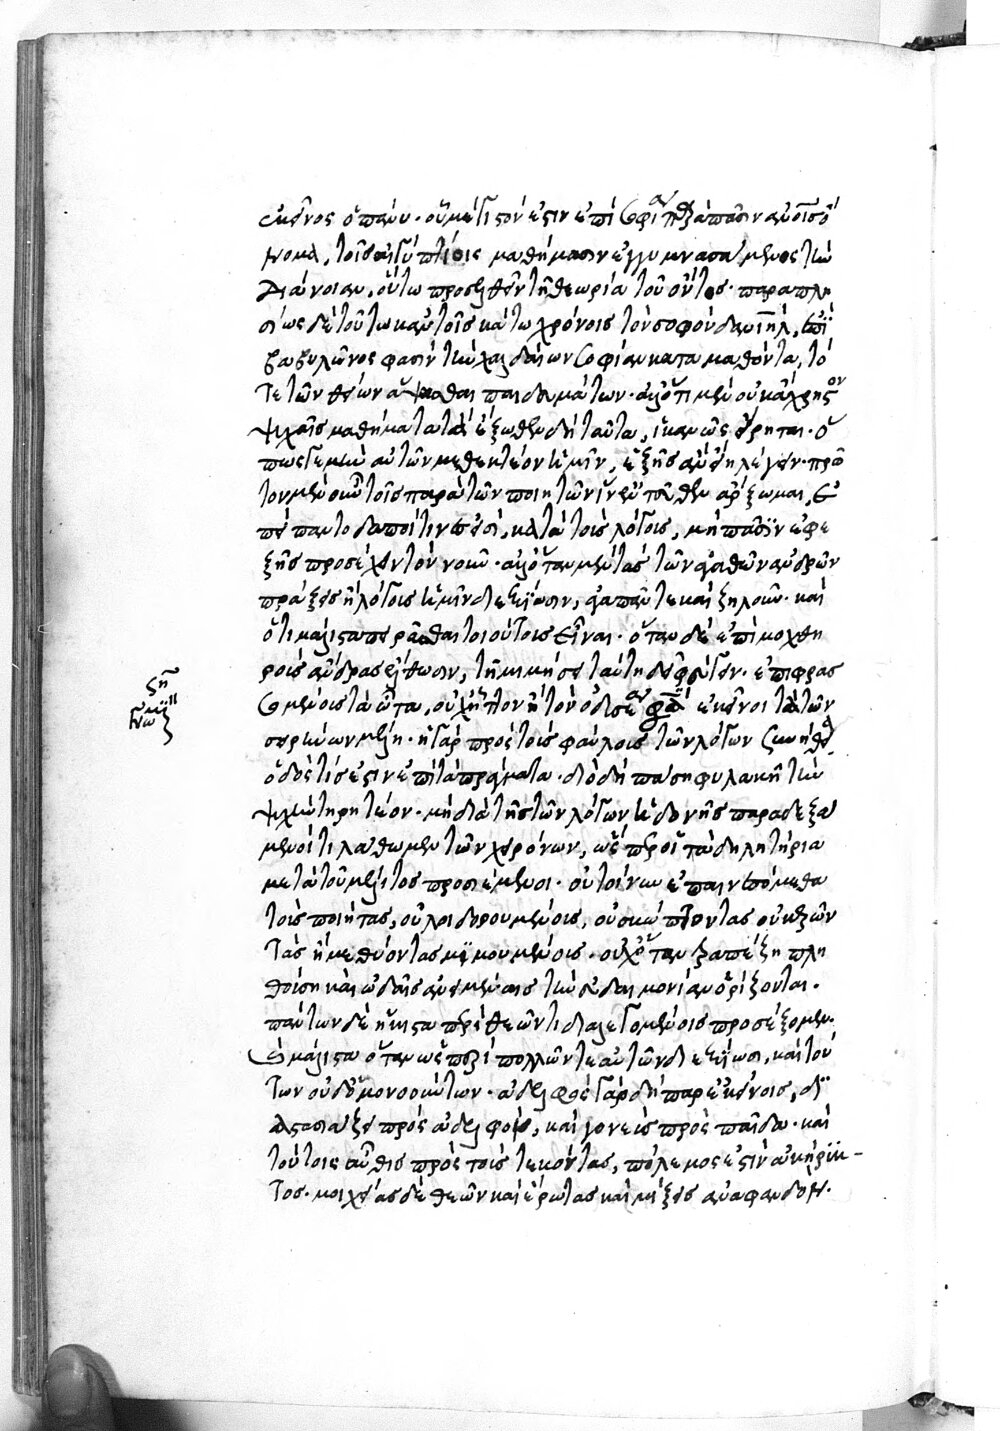 ἐκεῖνος ὁ πάνυ· οὗ μέγιστόν ἐστιν ἐπὶ σοφίᾳ παρὰ πᾶσιν ἀνθρώποις ὄ
νομα, τοῖς αἰγυπτίοις μαθήμασιν ἐγγυμνασάμενος τὴν
διάνοιαν, οὕτω προσελθεῖν τῇ θεωρίᾳ τοῦ ὄντος· παραπλη
σίως δὲ τούτω κἀν τοῖς κάτω χρόνοις τὸν σοφὸν δανιήλ, ἐπὶ
βαβυλῶνος φασὶν τὴν χαλδαίων σοφίαν καταμαθόντα, τό
τε τῶν θείων ἅψασθαι παιδευμάτων· ἀλλ' ὅτι μὲν οὐκ ἄχρηστον
ψυχαῖς μαθήματα τὰ ἔξωθεν δὴ ταῦτα, ἱκανῶς εἴρηται· ὅ
πως γε μὴν αὐτῶν μεθεκτέον ἡμῖν, ἑξῆς ἂν εἴη λέγειν· πρῶ
τον μὲν οὖν τοῖς παρὰ τῶν ποιητῶν ἵν' ἐντεῦθεν ἄρξωμαι, ἐ
πεὶ παντοδαποί τινές εἰσι, κατὰ τοὺς λόγους, μὴ πᾶσιν ἐφε
ξῆς προσέχειν τὸν νοῦν· ἀλλ' ὅταν μὲν τὰς τῶν ἀγαθῶν ἀνδρῶν
πράξεις ἢ λόγους ἡμῖν διεξίωσιν, ἀγαπᾶν τε καὶ ζηλοῦν· καὶ
ὅτι μάλιστα πειρᾶσθαι τοιούτους εἶναι· ὅταν δὲ ἐπὶ μοχθη
ροὺς ἄνδρας ἔλθωσιν, τὴν μίμησιν ταύτην δεῖ φεύγειν· ἐπιφρασ
σομένους τὰ ὦτα, οὐχ ἧττον ἢ τὸν ὀδυσσέα φασὶν ἐκεῖνοι τὰ τῶν
σειρήνων μέλη· ἡ γὰρ πρὸς τοὺς φαύλους τῶν λόγων συνήθεια
ὁδός τίς ἐστιν ἐπὶ τὰ πράγματα· διὸ δὴ πάσῃ φυλακῇ τὴν
ψυχὴν τηρητέον· μὴ διὰ τῆς τῶν λόγων ἡδονῆς παραδεξά
μενοί τι λάθωμεν τῶν χειρόνων, ὥσπερ οἱ τὰ δηλητήρια
μετὰ τοῦ μέλιτος προσιέμενοι· οὐ τοίνυν ἐπαινεσόμεθα
τοὺς ποιητάς, οὐ λοιδορουμένους, οὐ σκώπτοντας οὐκ ἐρῶν
τας ἢ μεθύοντας μιμουμένους· οὐχ ὅταν τραπέζῃ πλη
θούσῃ καὶ ᾠδαῖς ἀνειμέναις τὴν εὐδαιμονίαν ὁρίζονται·
πάντων δὲ ἥκιστα περὶ θεῶν τι διαλεγομένοις προσέξομεν·
καὶ μάλιστα ὅταν ὡς περὶ πολλῶν τε αὐτῶν διεξίωσι, καὶ τού
των οὐδὲ ὁμονοούντων· ἀδελφὸς γὰρ δὴ παρ' ἐκείνοις, δι
αστασιάζει πρὸς ἀδελφόν, καὶ γονεὺς πρὸς παῖδα· καὶ
τούτοις αὖθις πρὸς τοὺς τεκόντας, πόλεμός ἐστιν ἀκήρυκ-
τος· μοιχείας δὲ θεῶν καὶ ἔρωτας καὶ μίξεις ἀναφανδόν·